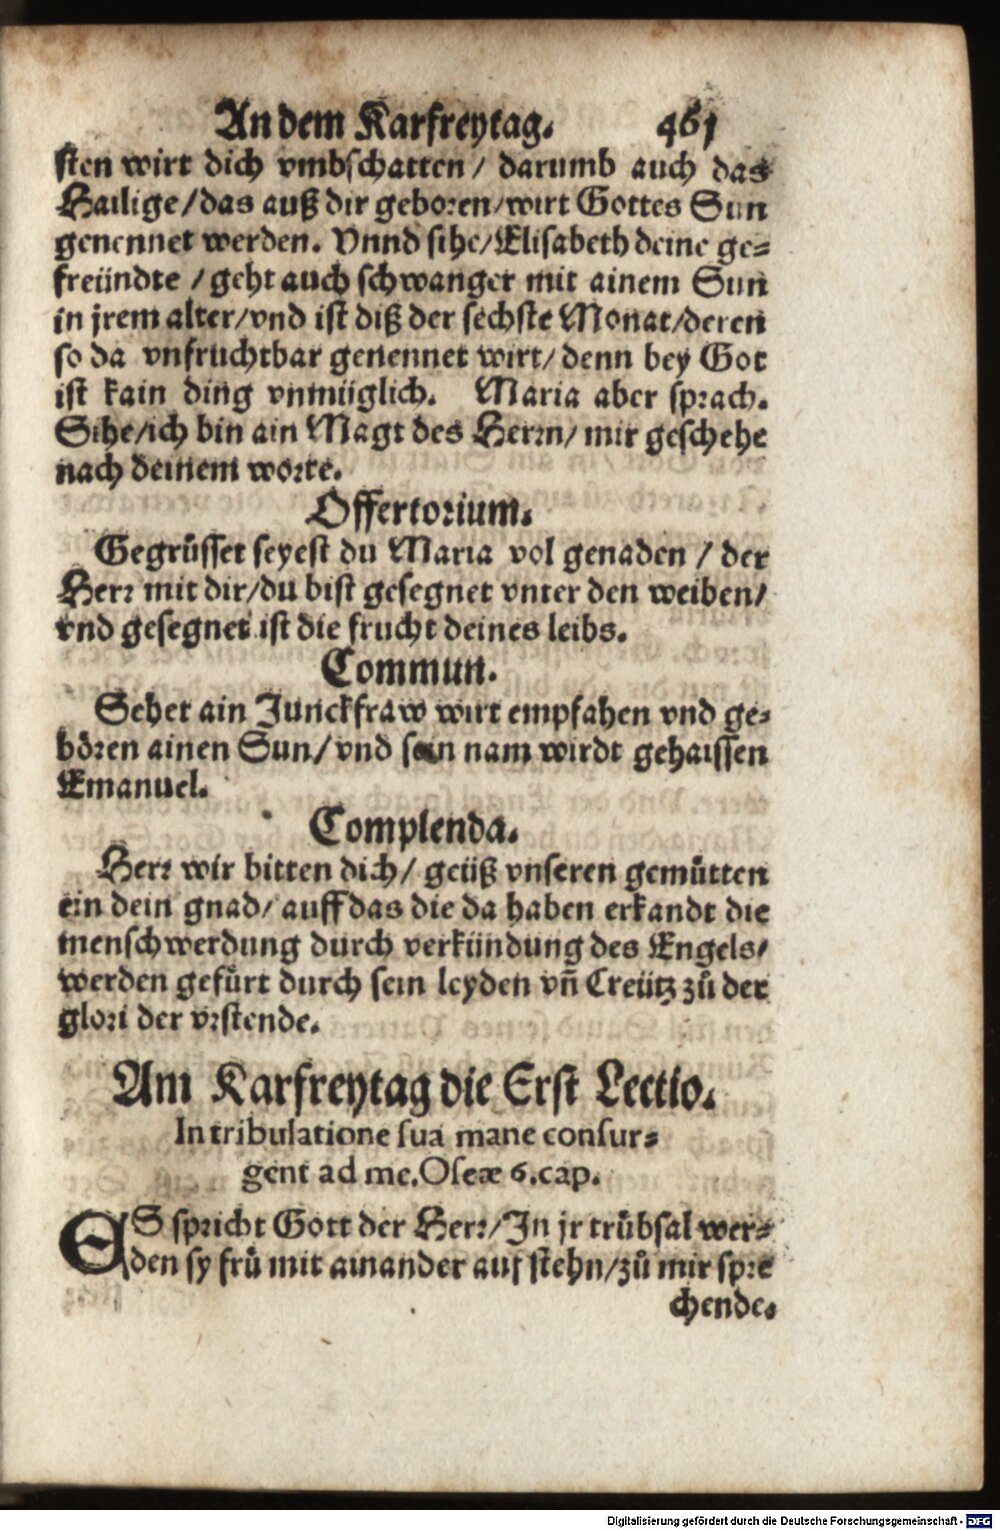 An dem Karfreytag. 461
sten wirt dich vmbschatten / darumb auch das
Hailige/das auß dir geboren/wirt Gottes Sun
genennet werden. Vnnd sihe/Elisabeth deine ge-
freündte / geht auch schwanger mit ainem Sun
in jrem alter/vnd ist diß der sechste Monat/deren
so da vnfruchtbar genennet wirt/ denn bey Got
ist kain ding vnmüglich. Maria aber sprach.
Sihe/ich bin ain Magt des Herrn/ mir geschehe
nach deinem worte.
Offertorium.
Gegrüsset seyest du Maria vol genaden / der
Herr mit dir/du bist gesegnet vnter den weiben/
vnd gesegnet ist die frucht deines leibs.
Commun.
Sehet ain Junckfraw wirt empfahen vnd ge-
bören ainen Sun/vnd sein nam wirdt gehaissen
Emanuel.
Complenda.
Herr wir bitten dich/ geüß vnseren gemütten
ein dein gnad/ auff das die da haben erkandt die
menschwerdung durch verkündung des Engels/
werden gefürt durch sein leyden vñ Creütz zů der
glori der vrstende.
Am Karfreytag die Erst Lectio.
In tribulatione sua mane consur-
gent ad me. Oseæ 6. cap.
ES spricht Gott der Herr/In jr trübsal wer-
den sy frů mit ainander auf stehn/zů mir spre
chende.
Digitalisierung gefördert durch die Deutsche Forschungsgemeinschaft - DFG